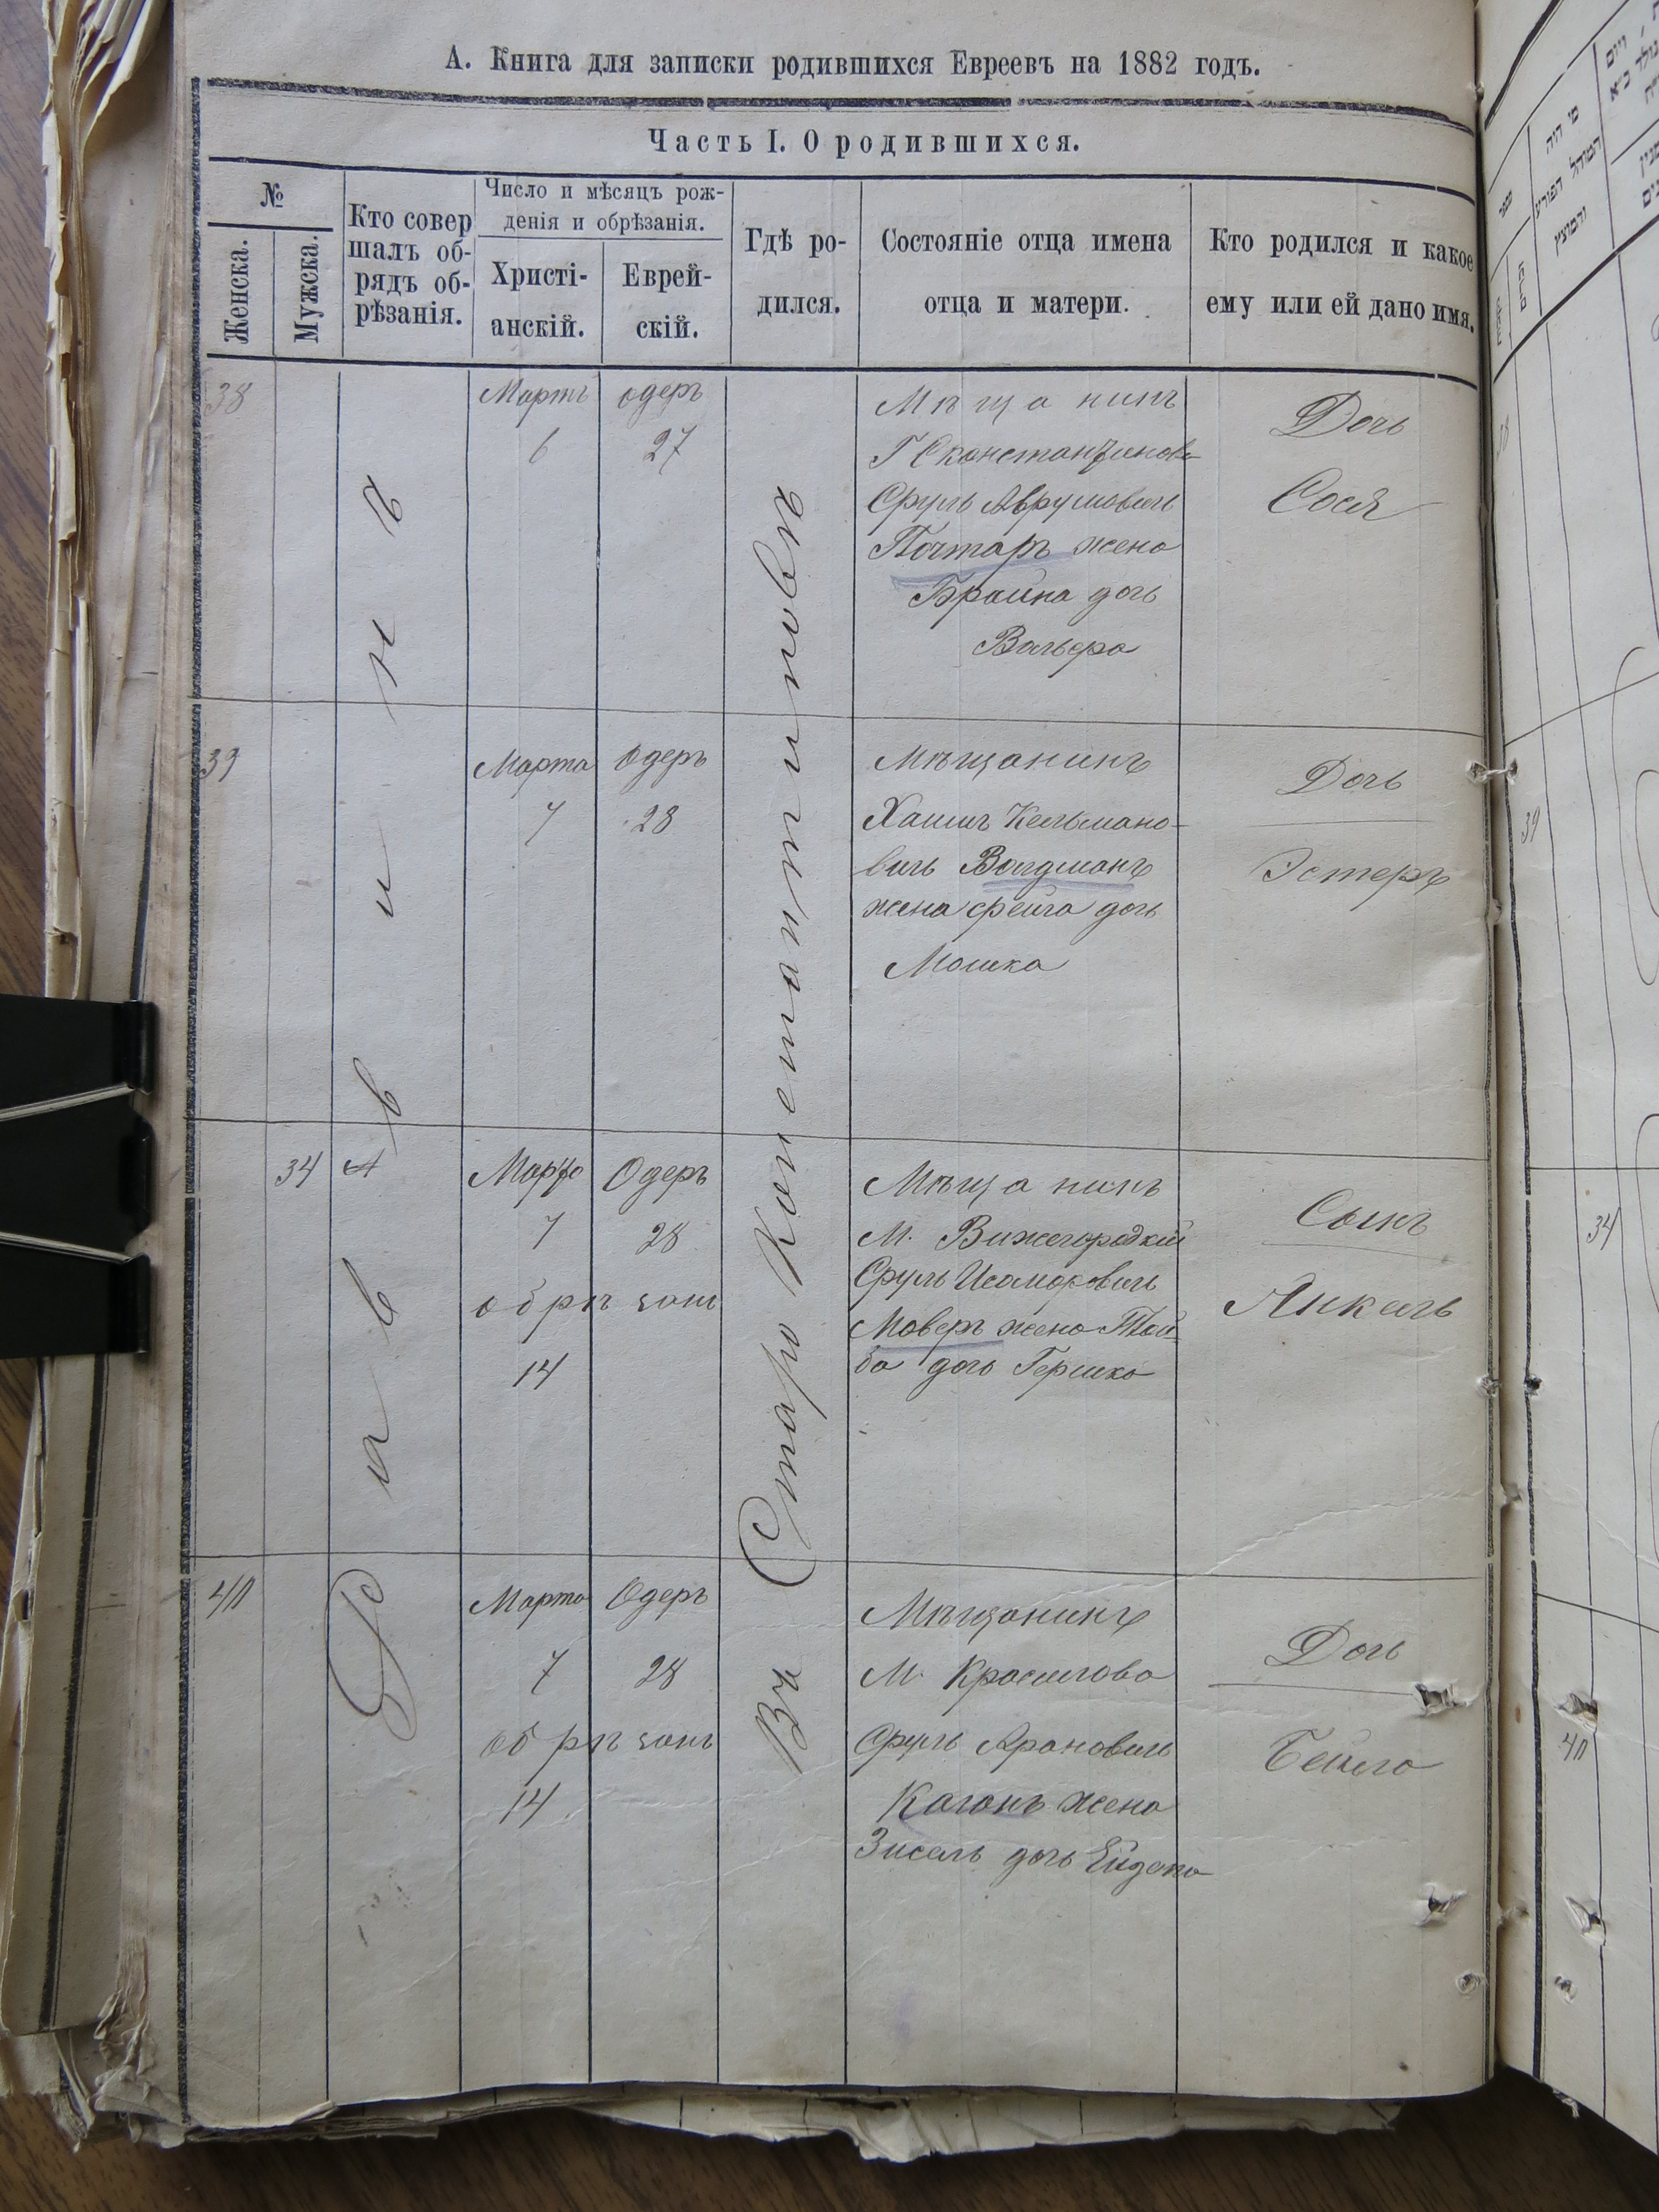 А. Книга для записки родившихся Евреевъ на 1882 годъ.
Часть I. О родившихся.
№
Женска.
Мужска.
Кто совер
шалъ об-
рядъ об-
рѣзанія.
Число и мѣсяцъ рож-
денія и обрѣзанія.
Христі-
анскій.
Еврей-
скій.
Гдѣ ро-
дился.
Состояніе отца имена
отца и матери.
Кто родился и какое
ему или ей дано имя.
Раввинъ
Въ Старо Константиновѣ
38
Мартъ
6
одеръ
27
Мѣщанинъ
Г Сконстантинова
Сруль Аврумовичъ
Почтаръ жена
Брайна дочь
Вольера
Дочь
Сося
39
Марта
7
Одеръ
28
Мѣщанинъ
Хаимъ Кельмано-
вичъ Волдманъ
жена фейга дочь
Мошка
Дочь
Эстеръ
34
Марта
7
Одеръ
28
обрѣзанъ
14
Мѣщанинъ
М. Вижегородкий
Сруль
Моверъ жена Той-
ба дочь Гершко
Сынъ
Янкель
40
Марта
7
Одеръ
28
обрѣзанъ
14
Мѣщанинъ
М. Красилова
Сруль Ароновичъ
Каганъ жена
Зисель дочь
Дочь
Бейла
38
39
34
40